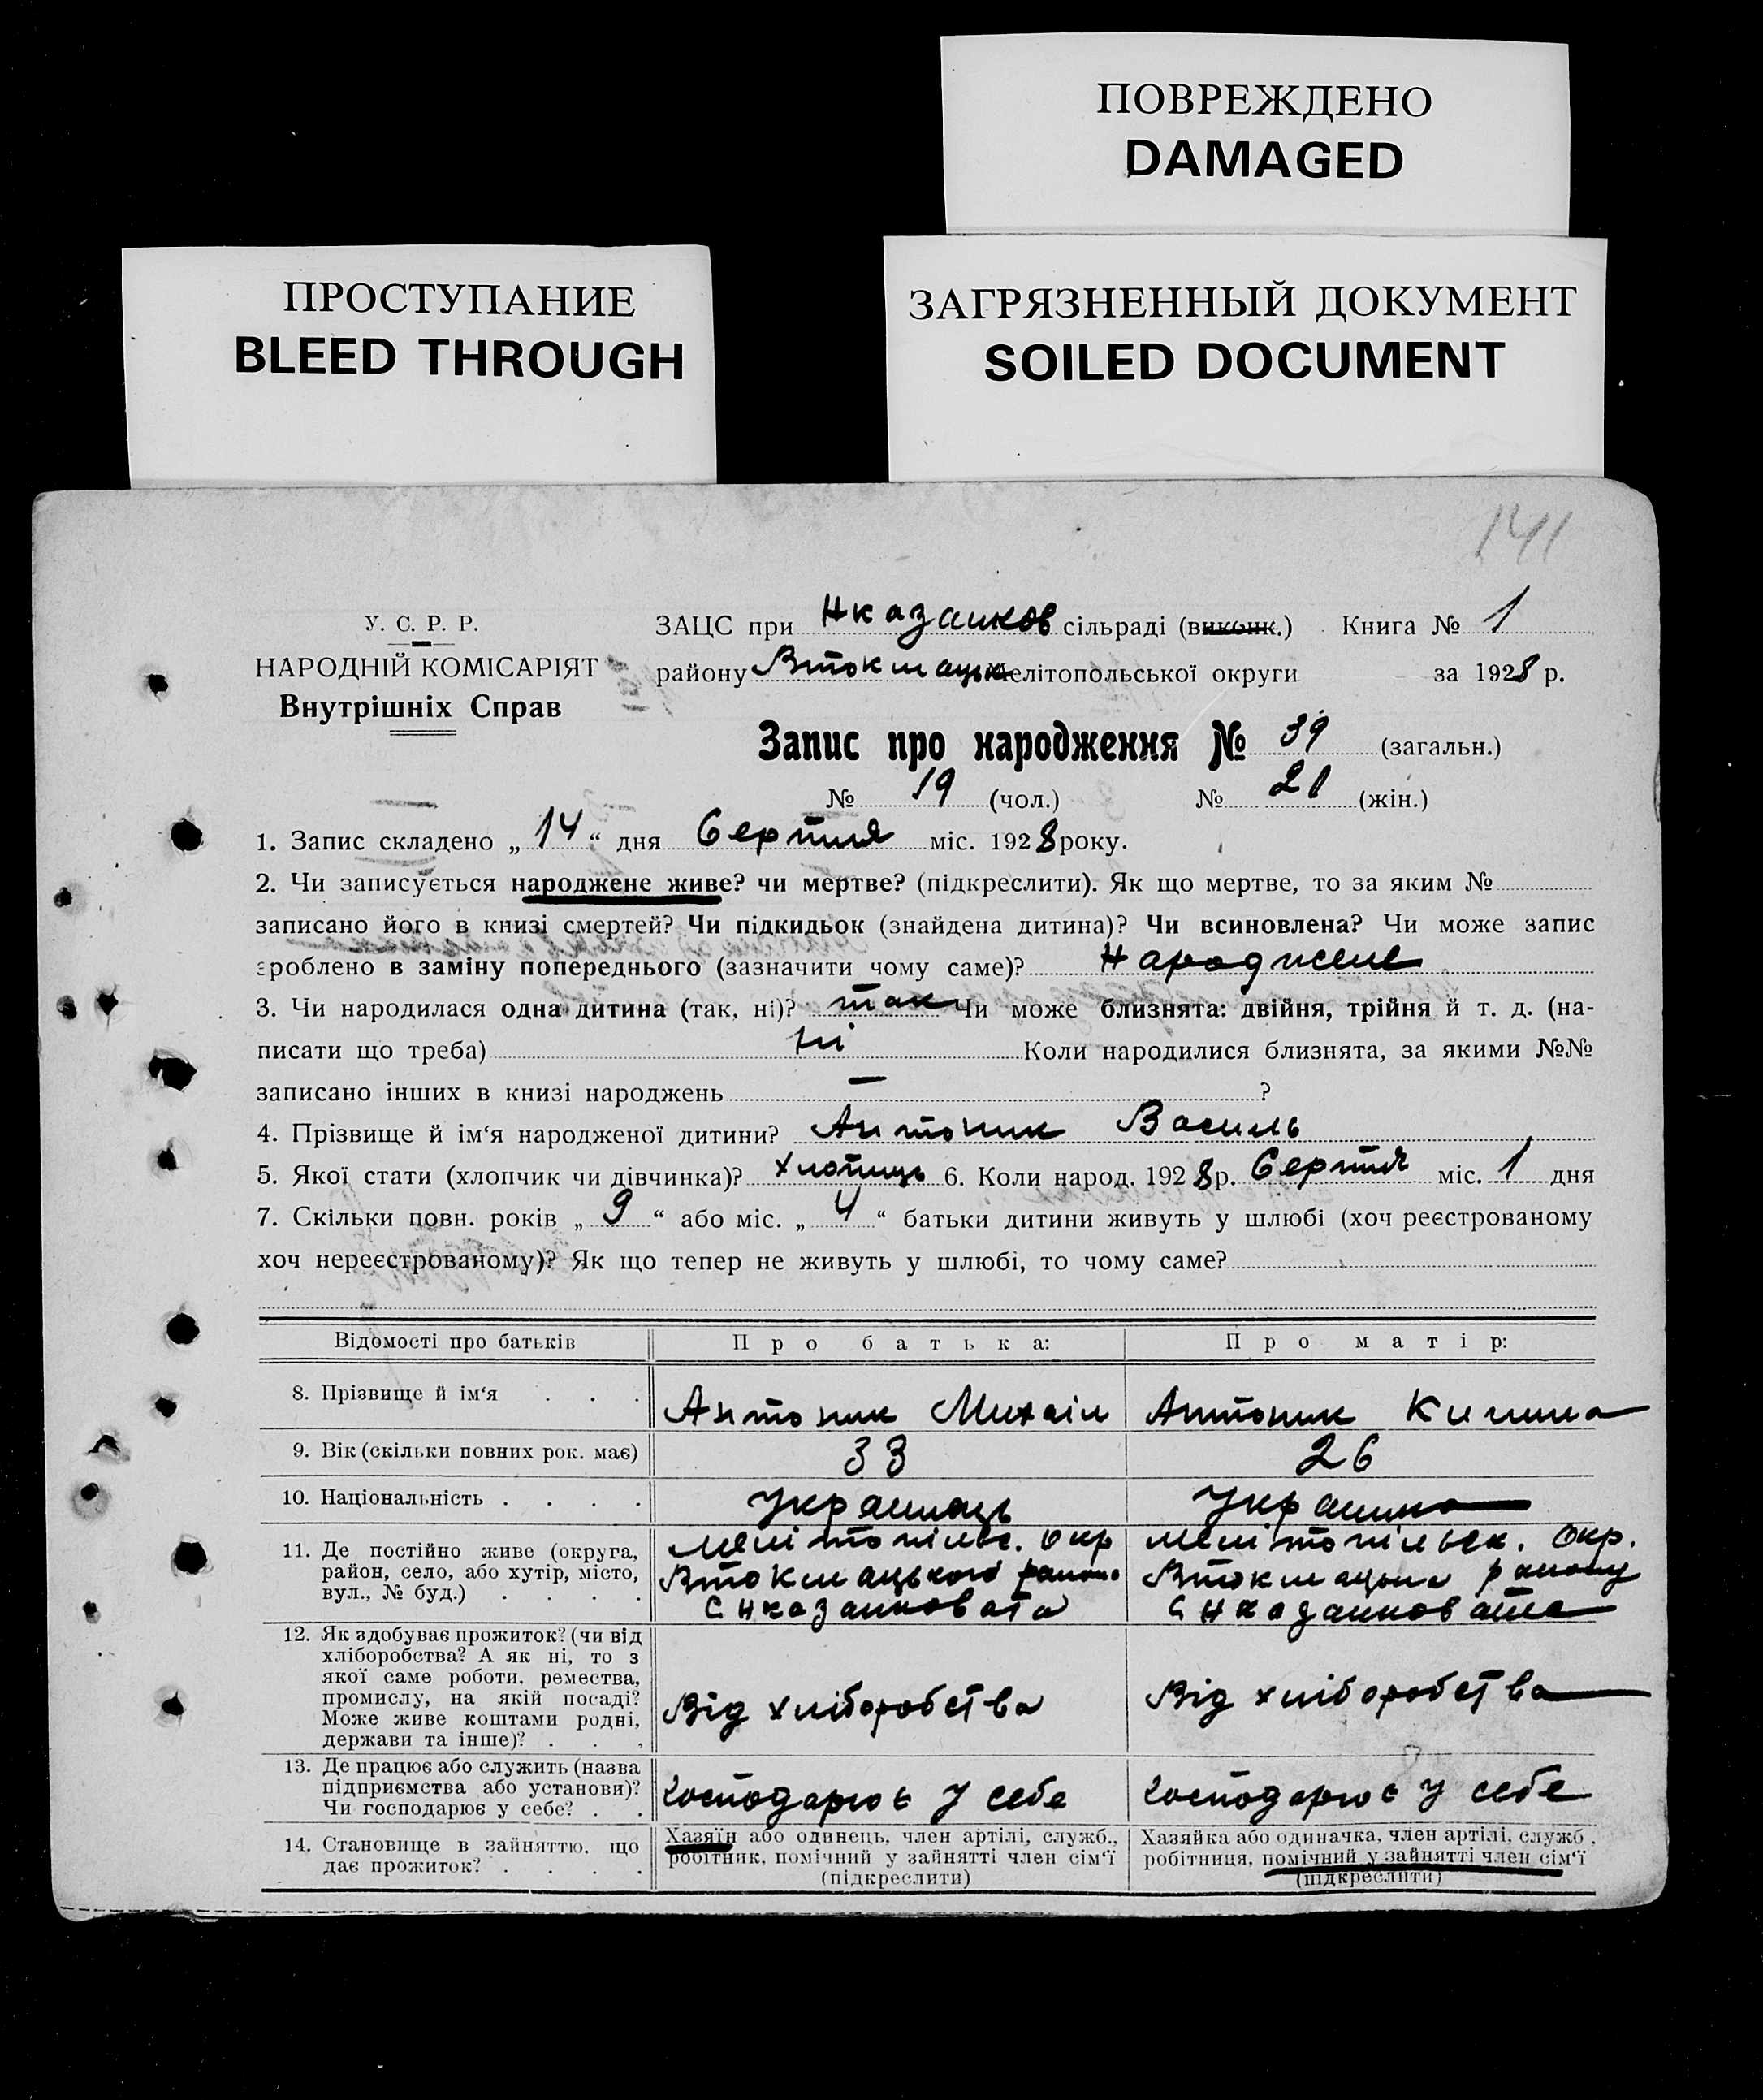 ПОВРЕЖДЕНО
DAMAGED
ПРОСТУПАНИЕ
BLEED THROUGH
ЗАГРЯЗНЕННЫЙ ДОКУМЕНТ
SOILED DOCUMENT
141
У. С. Р. Р.
НАРОДНІЙ КОМІСАРІЯТ
Внутрішніх Справ
ЗАЦС при Нказанков сільраді (виконк.) Книга № 1
району Втокмацьк Мелітопольської округи за 1928 р.
Запис про народження № 39 (загальн.)
№ 19 (чол.) № 20 (жін.)
1. Запис складено „ 14 “ дня Серпня міс. 1928 року.
2. Чи записується народжене живе? чи мертве? (підкреслити). Як що мертве, то за яким №
записано його в книзі смертей? Чи підкидьок (знайдена дитина)? Чи всиновлена? Чи може запис
зроблено в заміну попереднього (зазначити чому саме)? Народжене
3. Чи народилася одна дитина (так, ні)? так Чи може близнята: двійня, трійня й т. д. (на-
писати що треба) ні Коли народилися близнята, за якими №№
записано інших в книзі народжень — ?
4. Прізвище й ім‘я народженої дитини? Антоник Василь
5. Якої стати (хлопчик чи дівчинка)? хлопець 6. Коли народ. 1928 р. Серпня міс. 1 дня
7. Скільки повн. років „ 9 “ або міс. „ 4 “ батьки дитини живуть у шлюбі (хоч реєстрованому
хоч нереєстрованому)? Як що тепер не живуть у шлюбі, то чому саме?
Відомості про батьків
Про батька:
Про матір:
8. Прізвище й ім‘я . . .
Антоник Михаіл
Антоник
9. Вік (скільки повних рок. має)
33
26
10. Національність . . . .
Українець
Українка
11. Де постійно живе (округа,
район, село, або хутір, місто,
вул., № буд.) . . . .
Мелітопільс. окр
Втокмацького району
с Нказанковата
Мелітопільск. Окр.
Втокмацьк району
с Нказанковата
12. Як здобуває прожиток? (чи від
хліборобства? А як ні, то з
якої саме роботи, ремества,
промислу, на якій посаді?
Може живе коштами родні,
держави та інше)? . . .
Від хліборобства
Від хліборобства
13. Де працює або служить (назва
підприємства або установи)?
Чи господарює у себе? . .
господарює у себе
господарює у себе
14. Становище в зайняттю, що
дає прожиток? . . . .
Хазяїн або одинець, член артілі, служб.,
робітник, помічний у зайнятті член сім‘ї
(підкреслити)
Хазяйка або одиначка, член артілі, служб.,
робітниця, помічний у зайнятті член сім‘ї
(підкреслити)